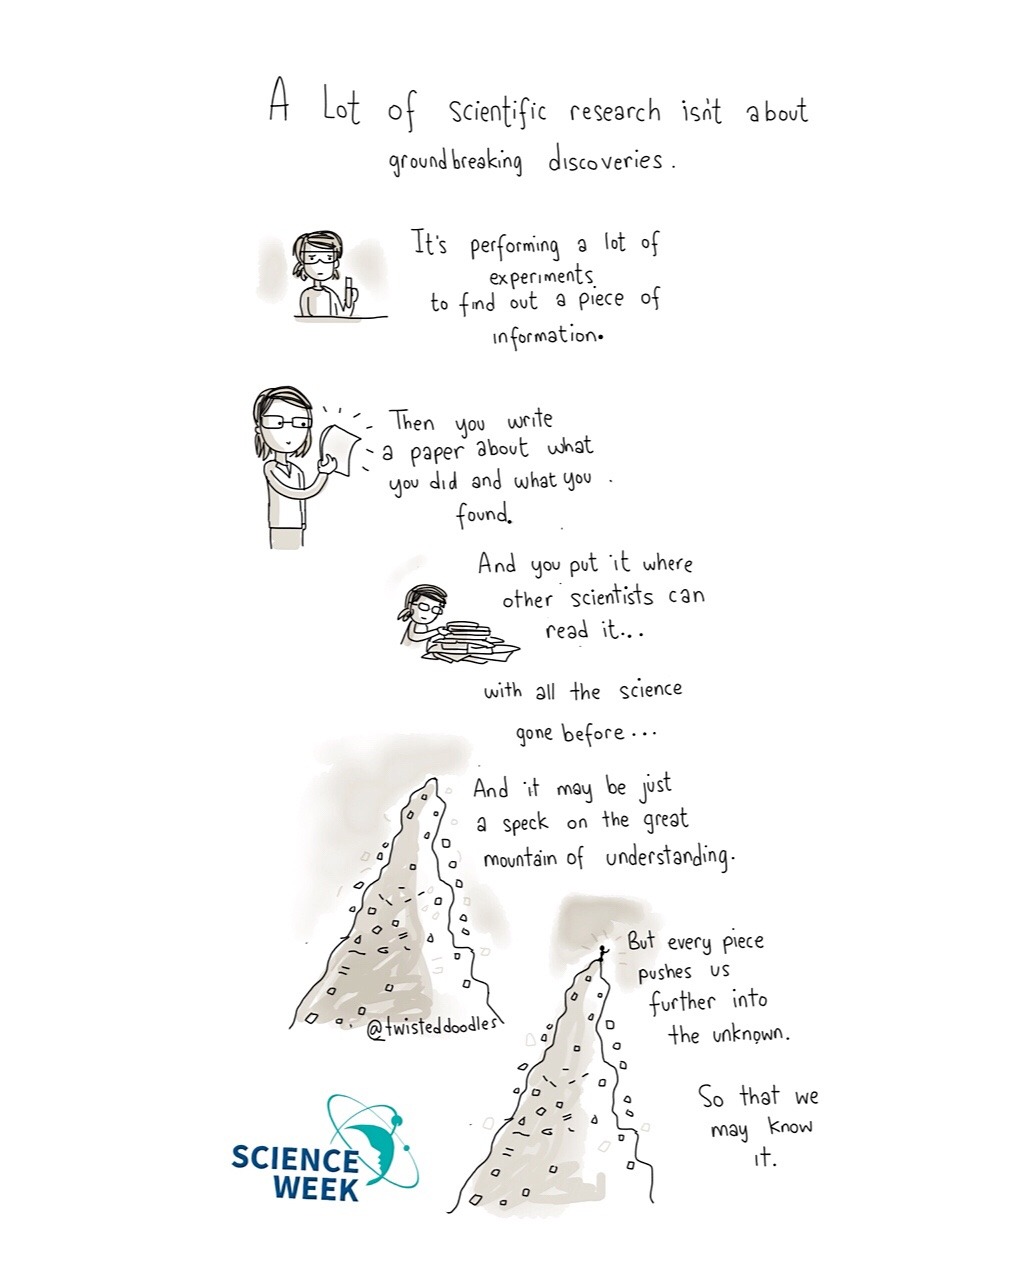 A Lot of scientific research isn't about
groundbreaking discoveries.
It's performing a lot of
experiments
to find out a piece of
information.
Then you write
a paper about what
you did and what you
found.
And you put it where
other scientists can
read it...
with all the science
gone before...
And it may be just
a speck on the great
mountain of understanding.
@twisteddoodles
But every piece
pushes us
further into
the unknown.
So that we
may know
it.
SCIENCE
WEEK